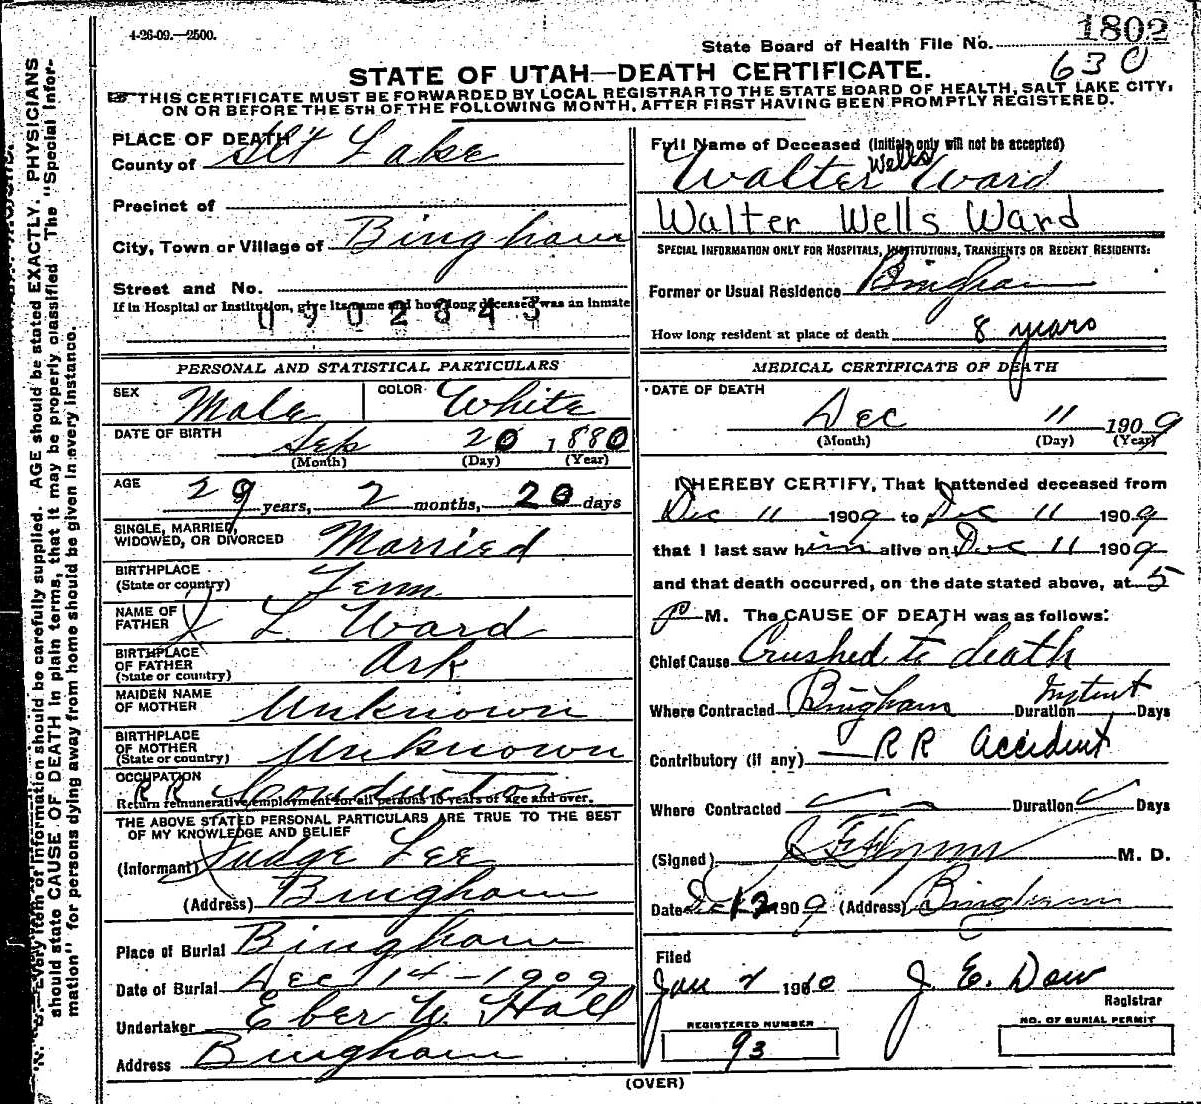 4-26-09.—2500.
1802
State Board of Health File No.
630
STATE OF UTAH—DEATH CERTIFICATE.
THIS CERTIFICATE MUST BE FORWARDED BY LOCAL REGISTRAR TO THE STATE BOARD OF HEALTH, SALT LAKE CITY,
ON OR BEFORE THE 5TH OF THE FOLLOWING MONTH, AFTER FIRST HAVING BEEN PROMPTLY REGISTERED.
PLACE OF DEATH
County of Slt Lake
Precinct of
City, Town or Village of Bingham
Street and No.
If in Hospital or Institution, give its name and how long deceased was an inmate
0702343
PERSONAL AND STATISTICAL PARTICULARS
SEX Male COLOR White
DATE OF BIRTH Sep 20 1880
(Month) (Day) (Year)
AGE 29 years, 2 months, 20 days
SINGLE, MARRIED,
WIDOWED, OR DIVORCED Married
BIRTHPLACE
(State or country) Tenn
NAME OF
FATHER J L Ward
BIRTHPLACE
OF FATHER
(State or country) Ark
MAIDEN NAME
OF MOTHER Unknown
BIRTHPLACE
OF MOTHER
(State or country) Unknown
OCCUPATION
RR Conductor
Return remunerative employment for all persons 10 years of age and over.
THE ABOVE STATED PERSONAL PARTICULARS ARE TRUE TO THE BEST
OF MY KNOWLEDGE AND BELIEF
(Informant) Judge Lee
(Address) Bingham
Place of Burial Bingham
Date of Burial Dec 14-1909
Undertaker Eber W. Hall
Address Bingham
Full Name of Deceased (Initials only will not be accepted)
Walter Wells Ward
Walter Wells Ward
SPECIAL INFORMATION ONLY FOR HOSPITALS, INSTITUTIONS, TRANSIENTS OR RECENT RESIDENTS:
Former or Usual Residence Bingham
How long resident at place of death 8 years
MEDICAL CERTIFICATE OF DEATH
DATE OF DEATH
Dec 11 1909
(Month) (Day) (Year)
I HEREBY CERTIFY, That I attended deceased from
Dec 11 1909 to Dec 11 1909
that I last saw him alive on Dec 11 1909
and that death occurred, on the date stated above, at 5
P M. The CAUSE OF DEATH was as follows:
Chief Cause Crushed to death
Where Contracted Bingham Duration Instant Days
Contributory (if any) RR Accident
Where Contracted Duration Days
(Signed) Flynn M. D.
Date Dec 12 1909 (Address) Bingham
Filed
Jan 1910 J. E. Dow
Registrar
REGISTERED NUMBER
93
NO. OF BURIAL PERMIT
(OVER)
N. B.—Every item of information should be carefully supplied. AGE should be stated EXACTLY. PHYSICIANS
should state CAUSE OF DEATH in plain terms, that it may be properly classified. The "Special Infor-
mation" for persons dying away from home should be given in every instance.